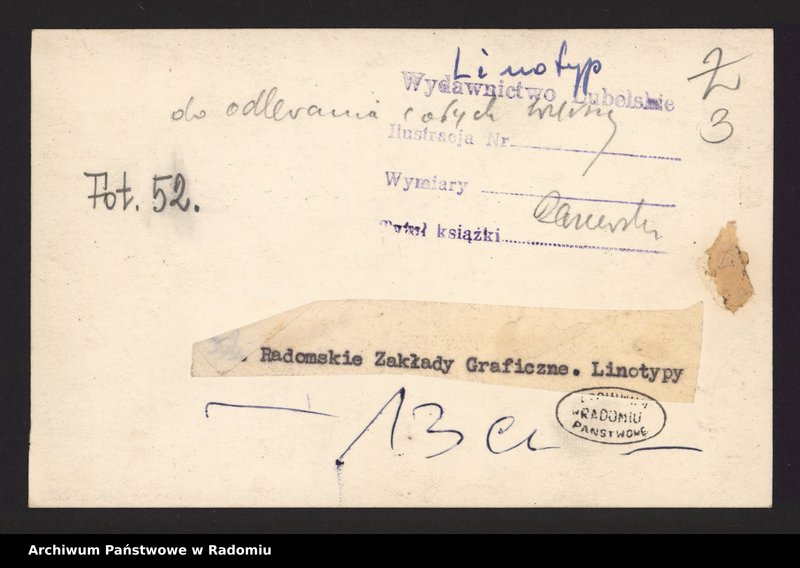 Linotyp
Wydawnictwo Lubelskie
do odlewania całych wierszy
Ilustracja Nr
Wymiary
Tytuł książki
Z
3
Fot. 52.
Radomskie Zakłady Graficzne. Linotypy
13 cm
w RADOMIU
PAŃSTWOWE
Archiwum Państwowe w Radomiu